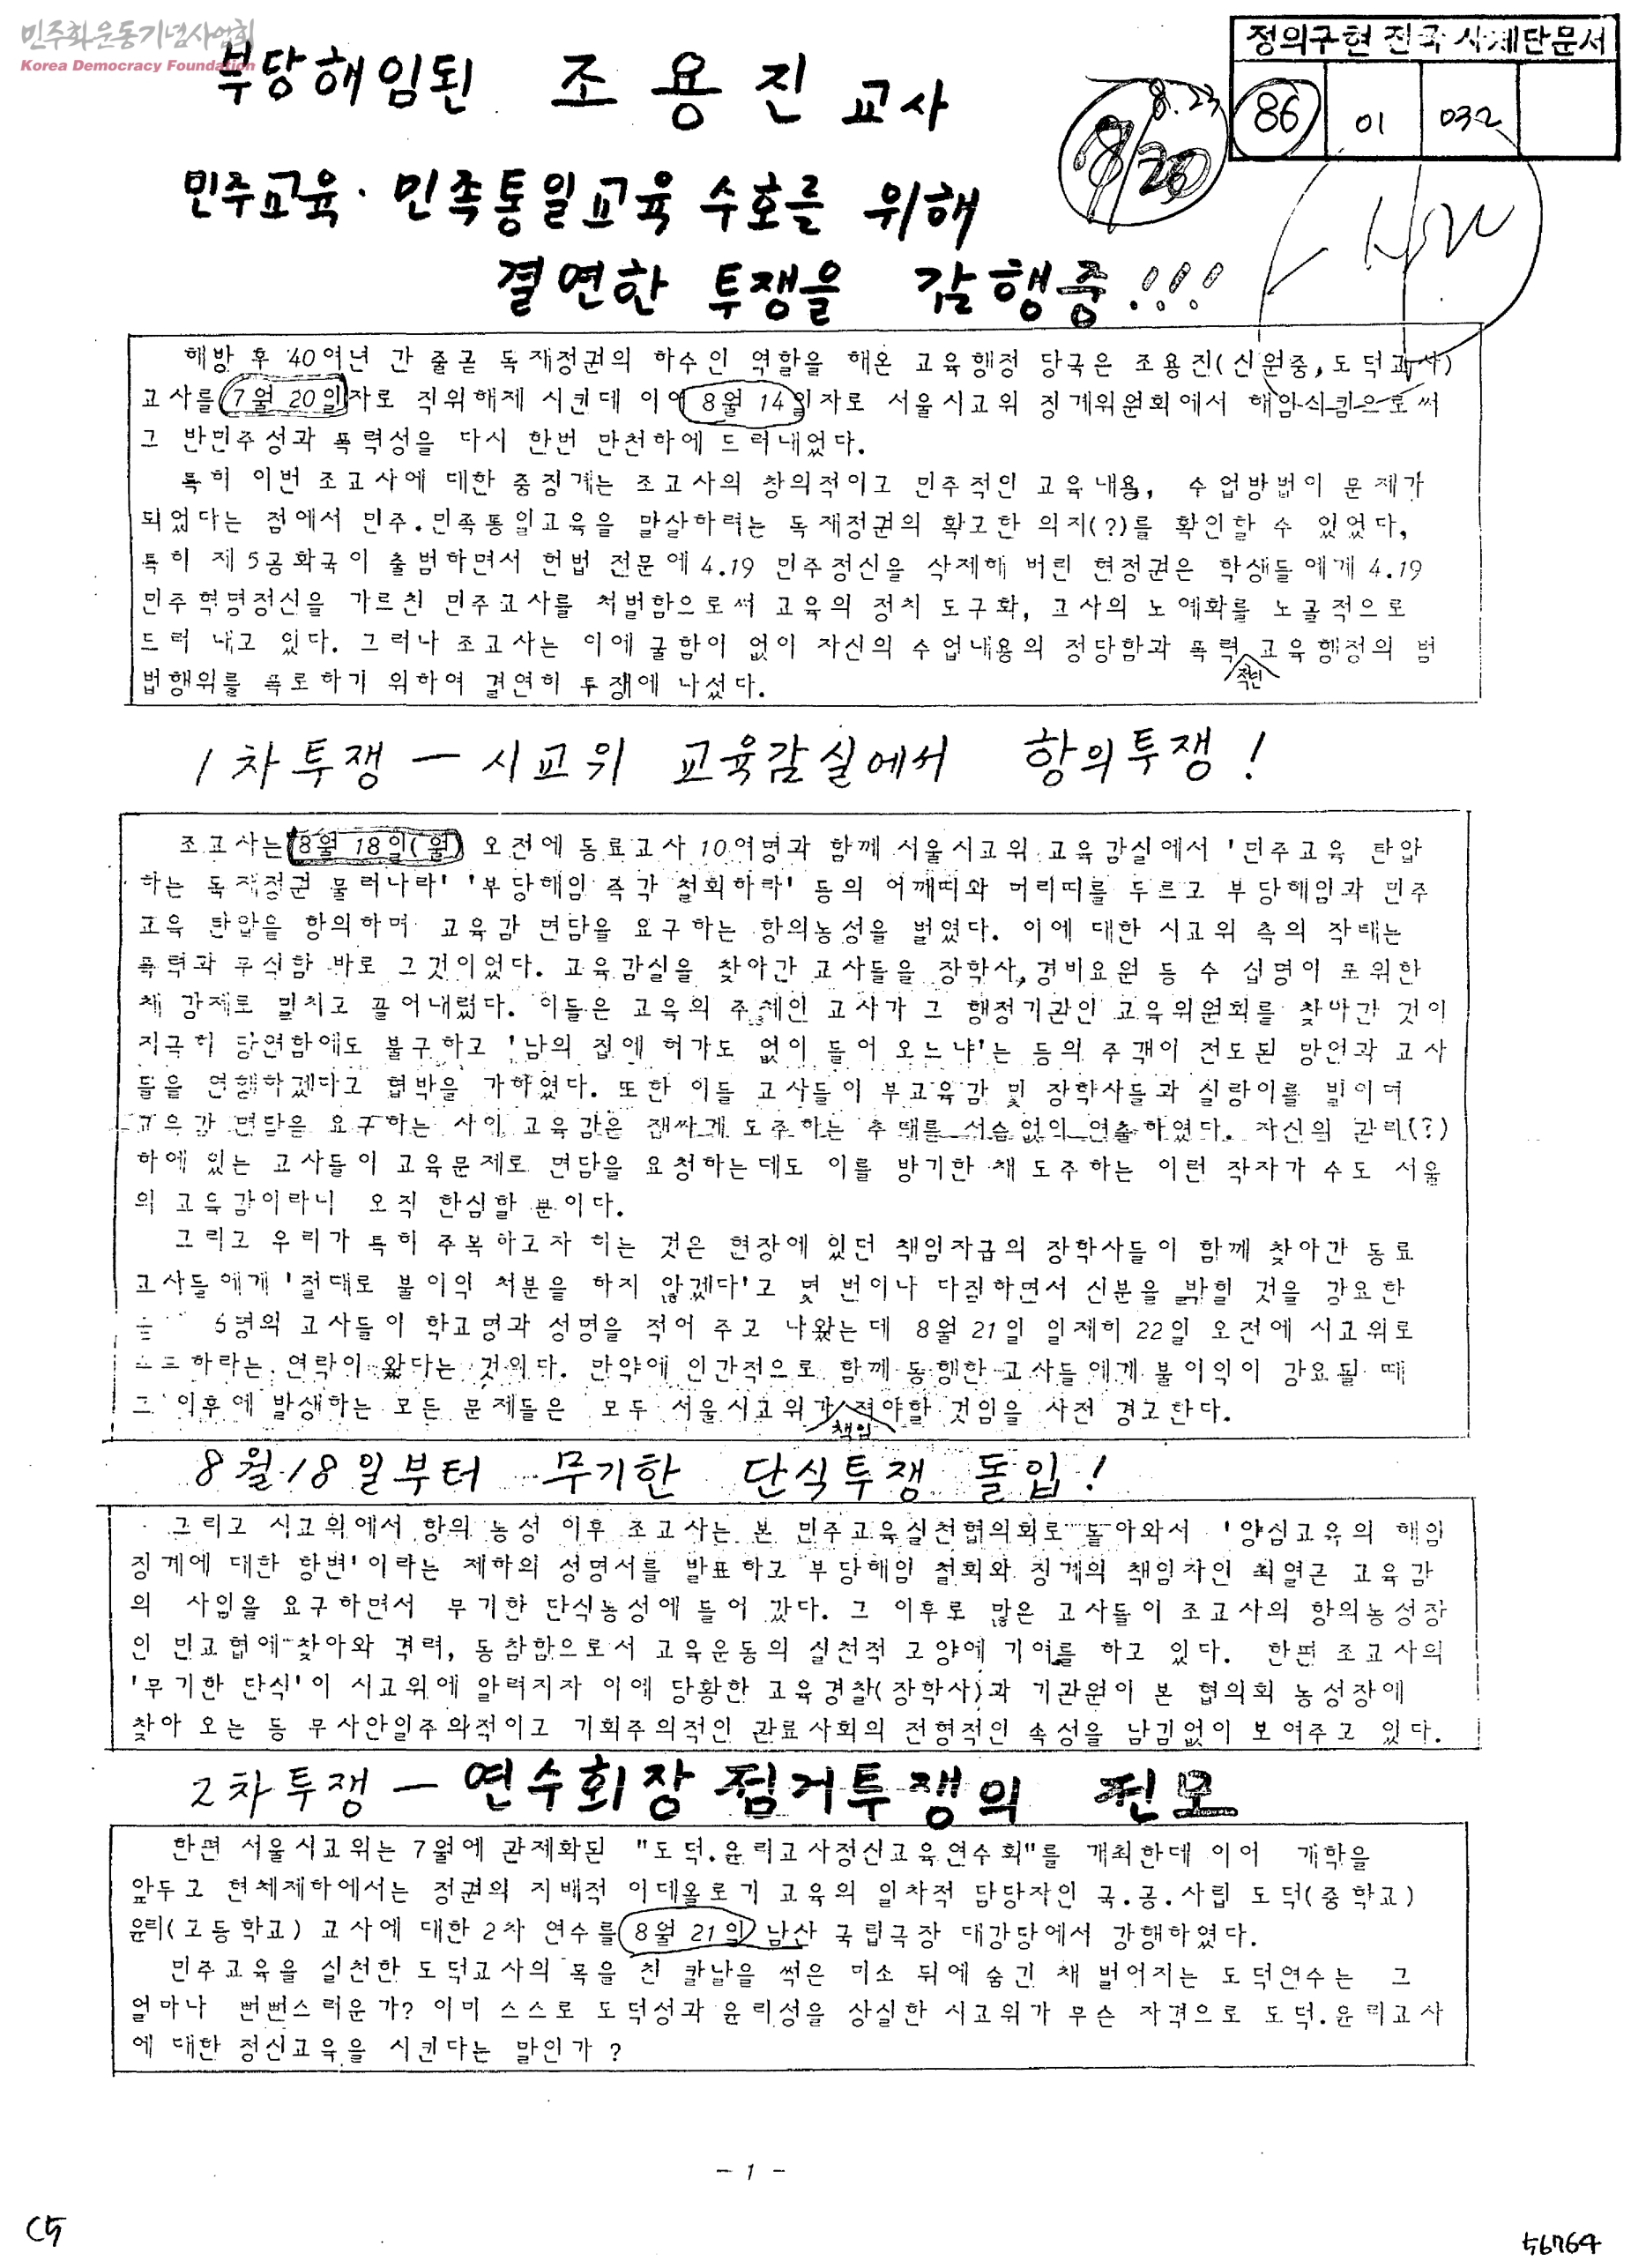 민주화운동기념사업회
Korea Democracy Foundation
정의구현 전국 사제단문서
86 01 032
8.23
부당해임된 조용진 교사
민주교육·민족통일교육 수호를 위해
결연한 투쟁을 감행중!!!
해방 후 40여년 간 줄곧 독재정권의 하수인 역할을 해온 교육행정 당국은 조용진(신원중,도덕교사)
교사를 7월 20일자로 직위해제 시킨데 이어 8월 14일자로 서울시교위 징계위원회에서 해임시킴으로써
그 반민주성과 폭력성을 다시 한번 만천하에 드러내었다.
특히 이번 조교사에 대한 중징계는 조교사의 창의적이고 민주적인 교육내용, 수업방법이 문제가
되었다는 점에서 민주.민족통일교육을 말살하려는 독재정권의 확고한 의지(?)를 확인할 수 있었다,
특히 제5공화국이 출범하면서 헌법 전문에 4.19 민주정신을 삭제해 버린 현정권은 학생들에게 4.19
민주혁명정신을 가르친 민주교사를 처벌함으로써 교육의 정치 도구화, 교사의 노예화를 노골적으로
드러 내고 있다. 그러나 조교사는 이에 굴함이 없이 자신의 수업내용의 정당함과 폭력적인 교육행정의 범
법행위를 폭로하기 위하여 결연히 투쟁에 나섰다.
1차투쟁 - 시교위 교육감실에서 항의투쟁!
조교사는 8월 18일(월) 오전에 동료교사 10여명과 함께 서울시교위 교육감실에서 '민주교육 탄압
하는 독재정권 물러나라' '부당해임 즉각 철회하라' 등의 어깨띠와 머리띠를 두르고 부당해임과 민주
교육 탄압을 항의하며 교육감 면담을 요구하는 항의농성을 벌였다. 이에 대한 시교위 측의 작태는
폭력과 무식함 바로 그것이었다. 교육감실을 찾아간 교사들을 장학사,경비요원 등 수 십명이 포위한
채 강제로 밀치고 끌어내렸다. 이들은 교육의 주체인 교사가 그 행정기관인 교육위원회를 찾아간 것이
지극히 당연함에도 불구하고 '남의 집에 허가도 없이 들어 오느냐'는 등의 주객이 전도된 망언과 교사
들을 연행하겠다고 협박을 가하였다. 또한 이들 교사들이 부교육감 및 장학사들과 실랑이를 벌이며
교육감 면담을 요구하는 사이 교육감은 잽싸게 도주하는 추태를 서슴없이 연출하였다. 자신의 관리(?)
하에 있는 교사들이 교육문제로 면담을 요청하는데도 이를 방기한 채 도주하는 이런 작자가 수도 서울
의 교육감이라니 오직 한심할 뿐이다.
그리고 우리가 특히 주목하고자 하는 것은 현장에 있던 책임자급의 장학사들이 함께 찾아간 동료
교사들에게 '절대로 불이익 처분을 하지 않겠다'고 몇 번이나 다짐하면서 신분을 밝힐 것을 강요한
6명의 교사들이 학교명과 성명을 적어 주고 나왔는데 8월 21일 일제히 22일 오전에 시교위로
하라는 연락이 왔다는 것이다. 만약에 인간적으로 함께 동행한 교사들에게 불이익이 강요될 때
그 이후에 발생하는 모든 문제들은 모두 서울시교위가 책임져야할 것임을 사전 경고한다.
8월18일부터 무기한 단식투쟁 돌입!
그리고 시교위에서 항의 농성 이후 조교사는 본 민주교육실천협의회로 돌아와서 '양심교육의 해임
징계에 대한 항변'이라는 제하의 성명서를 발표하고 부당해임 철회와 징계의 책임자인 최열곤 교육감
의 사임을 요구하면서 무기한 단식농성에 들어 갔다. 그 이후로 많은 교사들이 조교사의 항의농성장
인 민교협에 찾아와 격려, 동참함으로서 교육운동의 실천적 고양에 기여를 하고 있다. 한편 조교사의
'무기한 단식'이 시교위에 알려지자 이에 당황한 교육경찰(장학사)과 기관원이 본 협의회 농성장에
찾아 오는 등 무사안일주의적이고 기회주의적인 관료사회의 전형적인 속성을 남김없이 보여주고 있다.
2차투쟁 - 연수회장 점거투쟁의 전모
한편 서울시교위는 7월에 관제화된 "도덕.윤리교사정신교육연수회"를 개최한데 이어 개학을
앞두고 현체제하에서는 정권의 지배적 이데올로기 교육의 일차적 담당자인 국.공.사립 도덕(중학교)
윤리(고등학교) 교사에 대한 2차 연수를 8월 21일 남산 국립극장 대강당에서 강행하였다.
민주교육을 실천한 도덕교사의 목을 친 칼날을 썩은 미소 뒤에 숨긴 채 벌어지는 도덕연수는 그
얼마나 뻔뻔스러운가? 이미 스스로 도덕성과 윤리성을 상실한 시교위가 무슨 자격으로 도덕.윤리교사
에 대한 정신교육을 시킨다는 말인가?
- 1 -
C5
56764